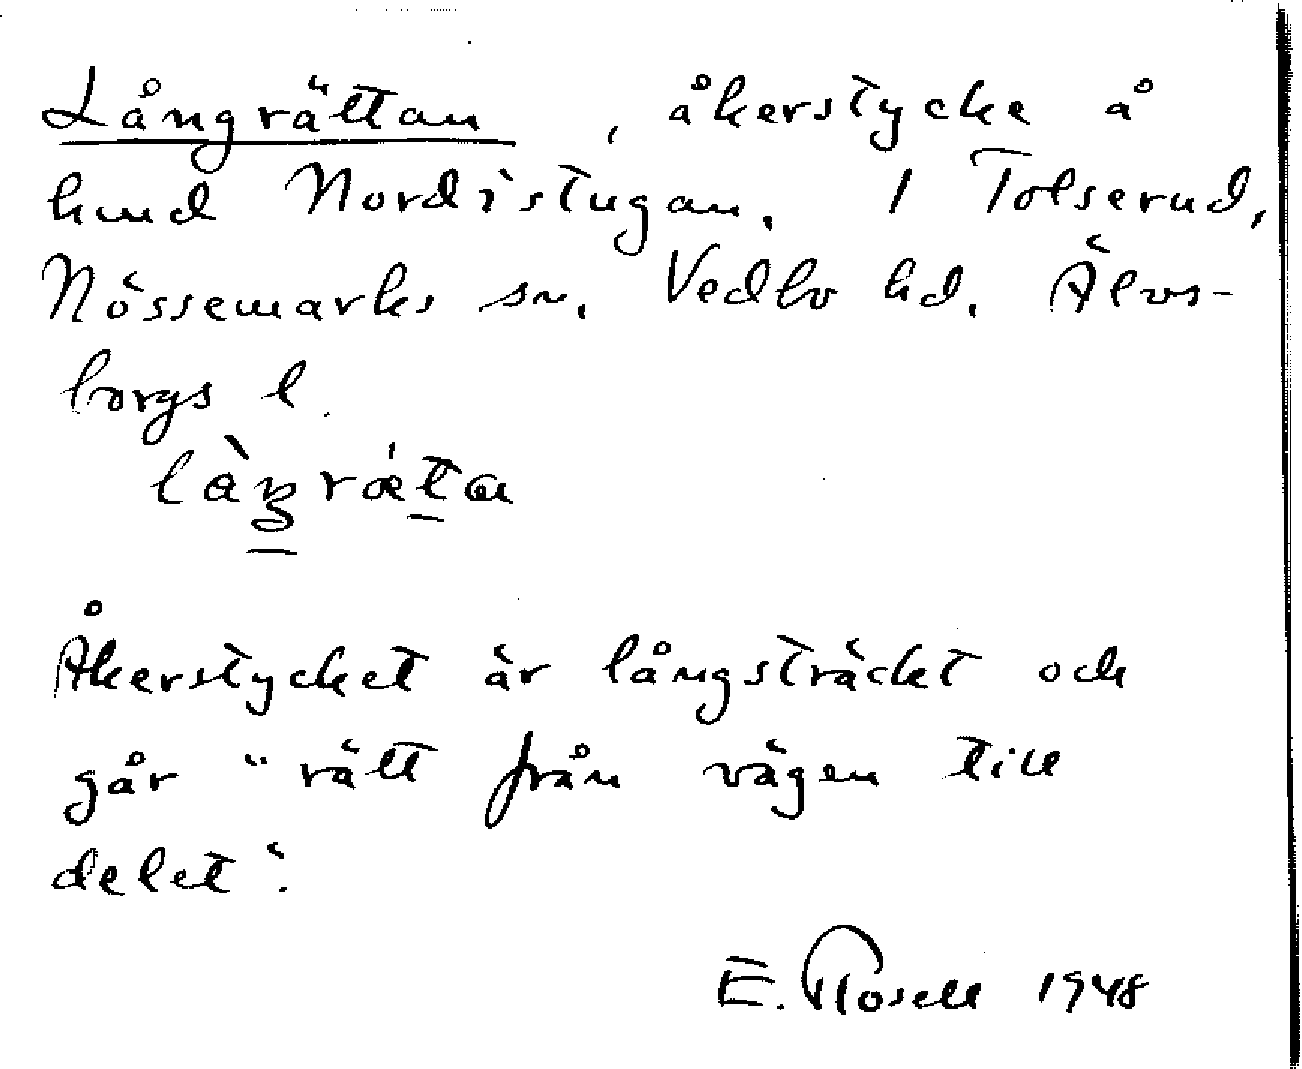 Långrättan, åkerstycke å
hmd Nordistugan, 1 Tolserud,
Nössemarks sn. Vedbo hd. Älvs-
borgs l.
Åkerstycket är långsträckt och
går "rätt från vägen till
delet".
E. Rosell 1948